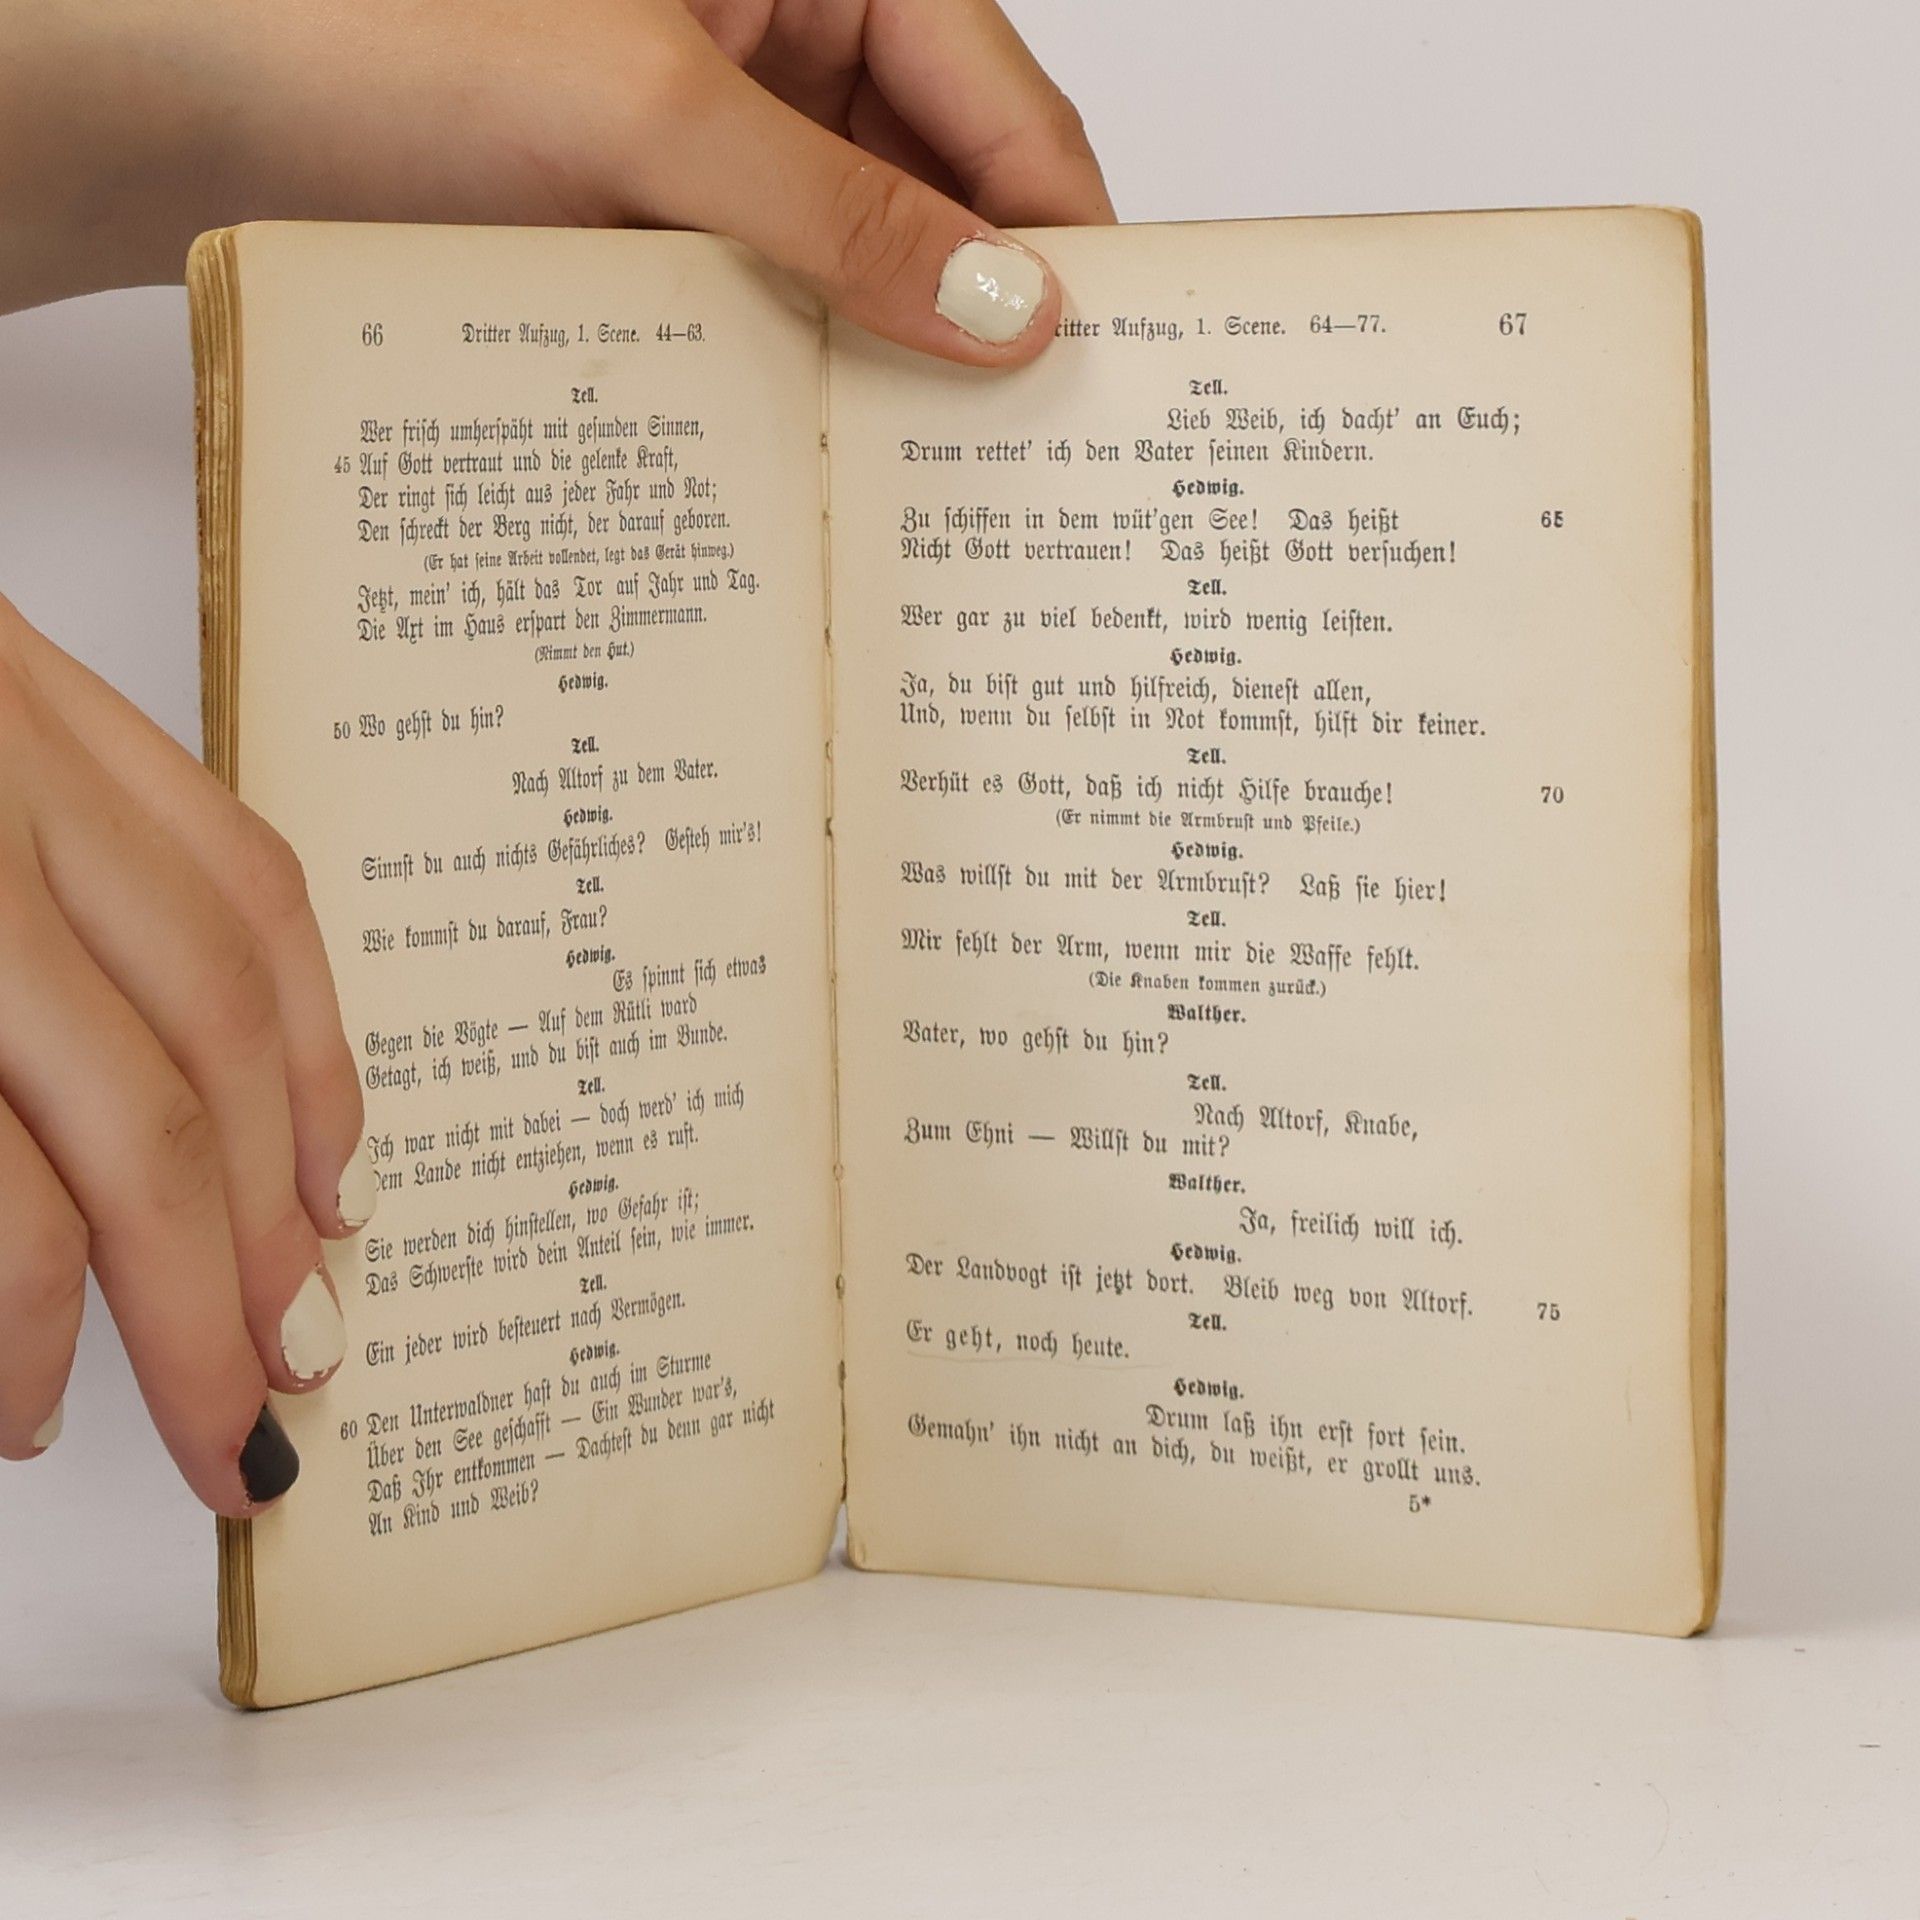 66 Dritter Aufzug, 1. Scene. 44—63.
Tell.
Wer friſch umherſpäht mit geſunden Sinnen,
45 Auf Gott vertraut und die gelenke Kraft,
Der ringt ſich leicht aus jeder Fahr und Not;
Den ſchreckt der Berg nicht, der darauf geboren.
(Er hat ſeine Arbeit vollendet, legt das Gerät hinweg.)
Jetzt, mein' ich, hält das Tor auf Jahr und Tag.
Die Axt im Haus erſpart den Zimmermann.
(Nimmt den Hut.)
Hedwig.
50 Wo gehſt du hin?
Tell.
Nach Altorf zu dem Vater.
Hedwig.
Sinnſt du auch nichts Gefährliches? Geſteh mir's!
Tell.
Wie kommſt du darauf, Frau?
Hedwig.
Es ſpinnt ſich etwas
Gegen die Vögte — Auf dem Rütli ward
Getagt, ich weiß, und du biſt auch im Bunde.
Tell.
Ich war nicht mit dabei — doch werd' ich mich
Dem Lande nicht entziehen, wenn es ruft.
Hedwig.
Sie werden dich hinſtellen, wo Gefahr iſt;
Das Schwerſte wird dein Anteil ſein, wie immer.
Tell.
Ein jeder wird beſteuert nach Vermögen.
Hedwig.
60 Den Unterwaldner haſt du auch im Sturme
Über den See geſchafft — Ein Wunder war's,
Daß Ihr entkommen — Dachteſt du denn gar nicht
An Kind und Weib?
ritter Aufzug, 1. Scene. 64—77. 67
Tell.
Lieb Weib, ich dacht' an Euch;
Drum rettet' ich den Vater ſeinen Kindern.
Hedwig.
Zu ſchiffen in dem wüt'gen See! Das heißt 65
Nicht Gott vertrauen! Das heißt Gott verſuchen!
Tell.
Wer gar zu viel bedenkt, wird wenig leiſten.
Hedwig.
Ja, du biſt gut und hilfreich, dieneſt allen,
Und, wenn du ſelbſt in Not kommſt, hilft dir keiner.
Tell.
Verhüt es Gott, daß ich nicht Hilfe brauche! 70
(Er nimmt die Armbruſt und Pfeile.)
Hedwig.
Was willſt du mit der Armbruſt? Laß ſie hier!
Tell.
Mir fehlt der Arm, wenn mir die Waffe fehlt.
(Die Knaben kommen zurück.)
Walther.
Vater, wo gehſt du hin?
Tell.
Nach Altorf, Knabe,
Zum Ehni — Willſt du mit?
Walther.
Ja, freilich will ich.
Hedwig.
Der Landvogt iſt jetzt dort. Bleib weg von Altorf. 75
Tell.
Er geht, noch heute.
Hedwig.
Drum laß ihn erſt fort ſein.
Gemahn' ihn nicht an dich, du weißt, er grollt uns.
5*